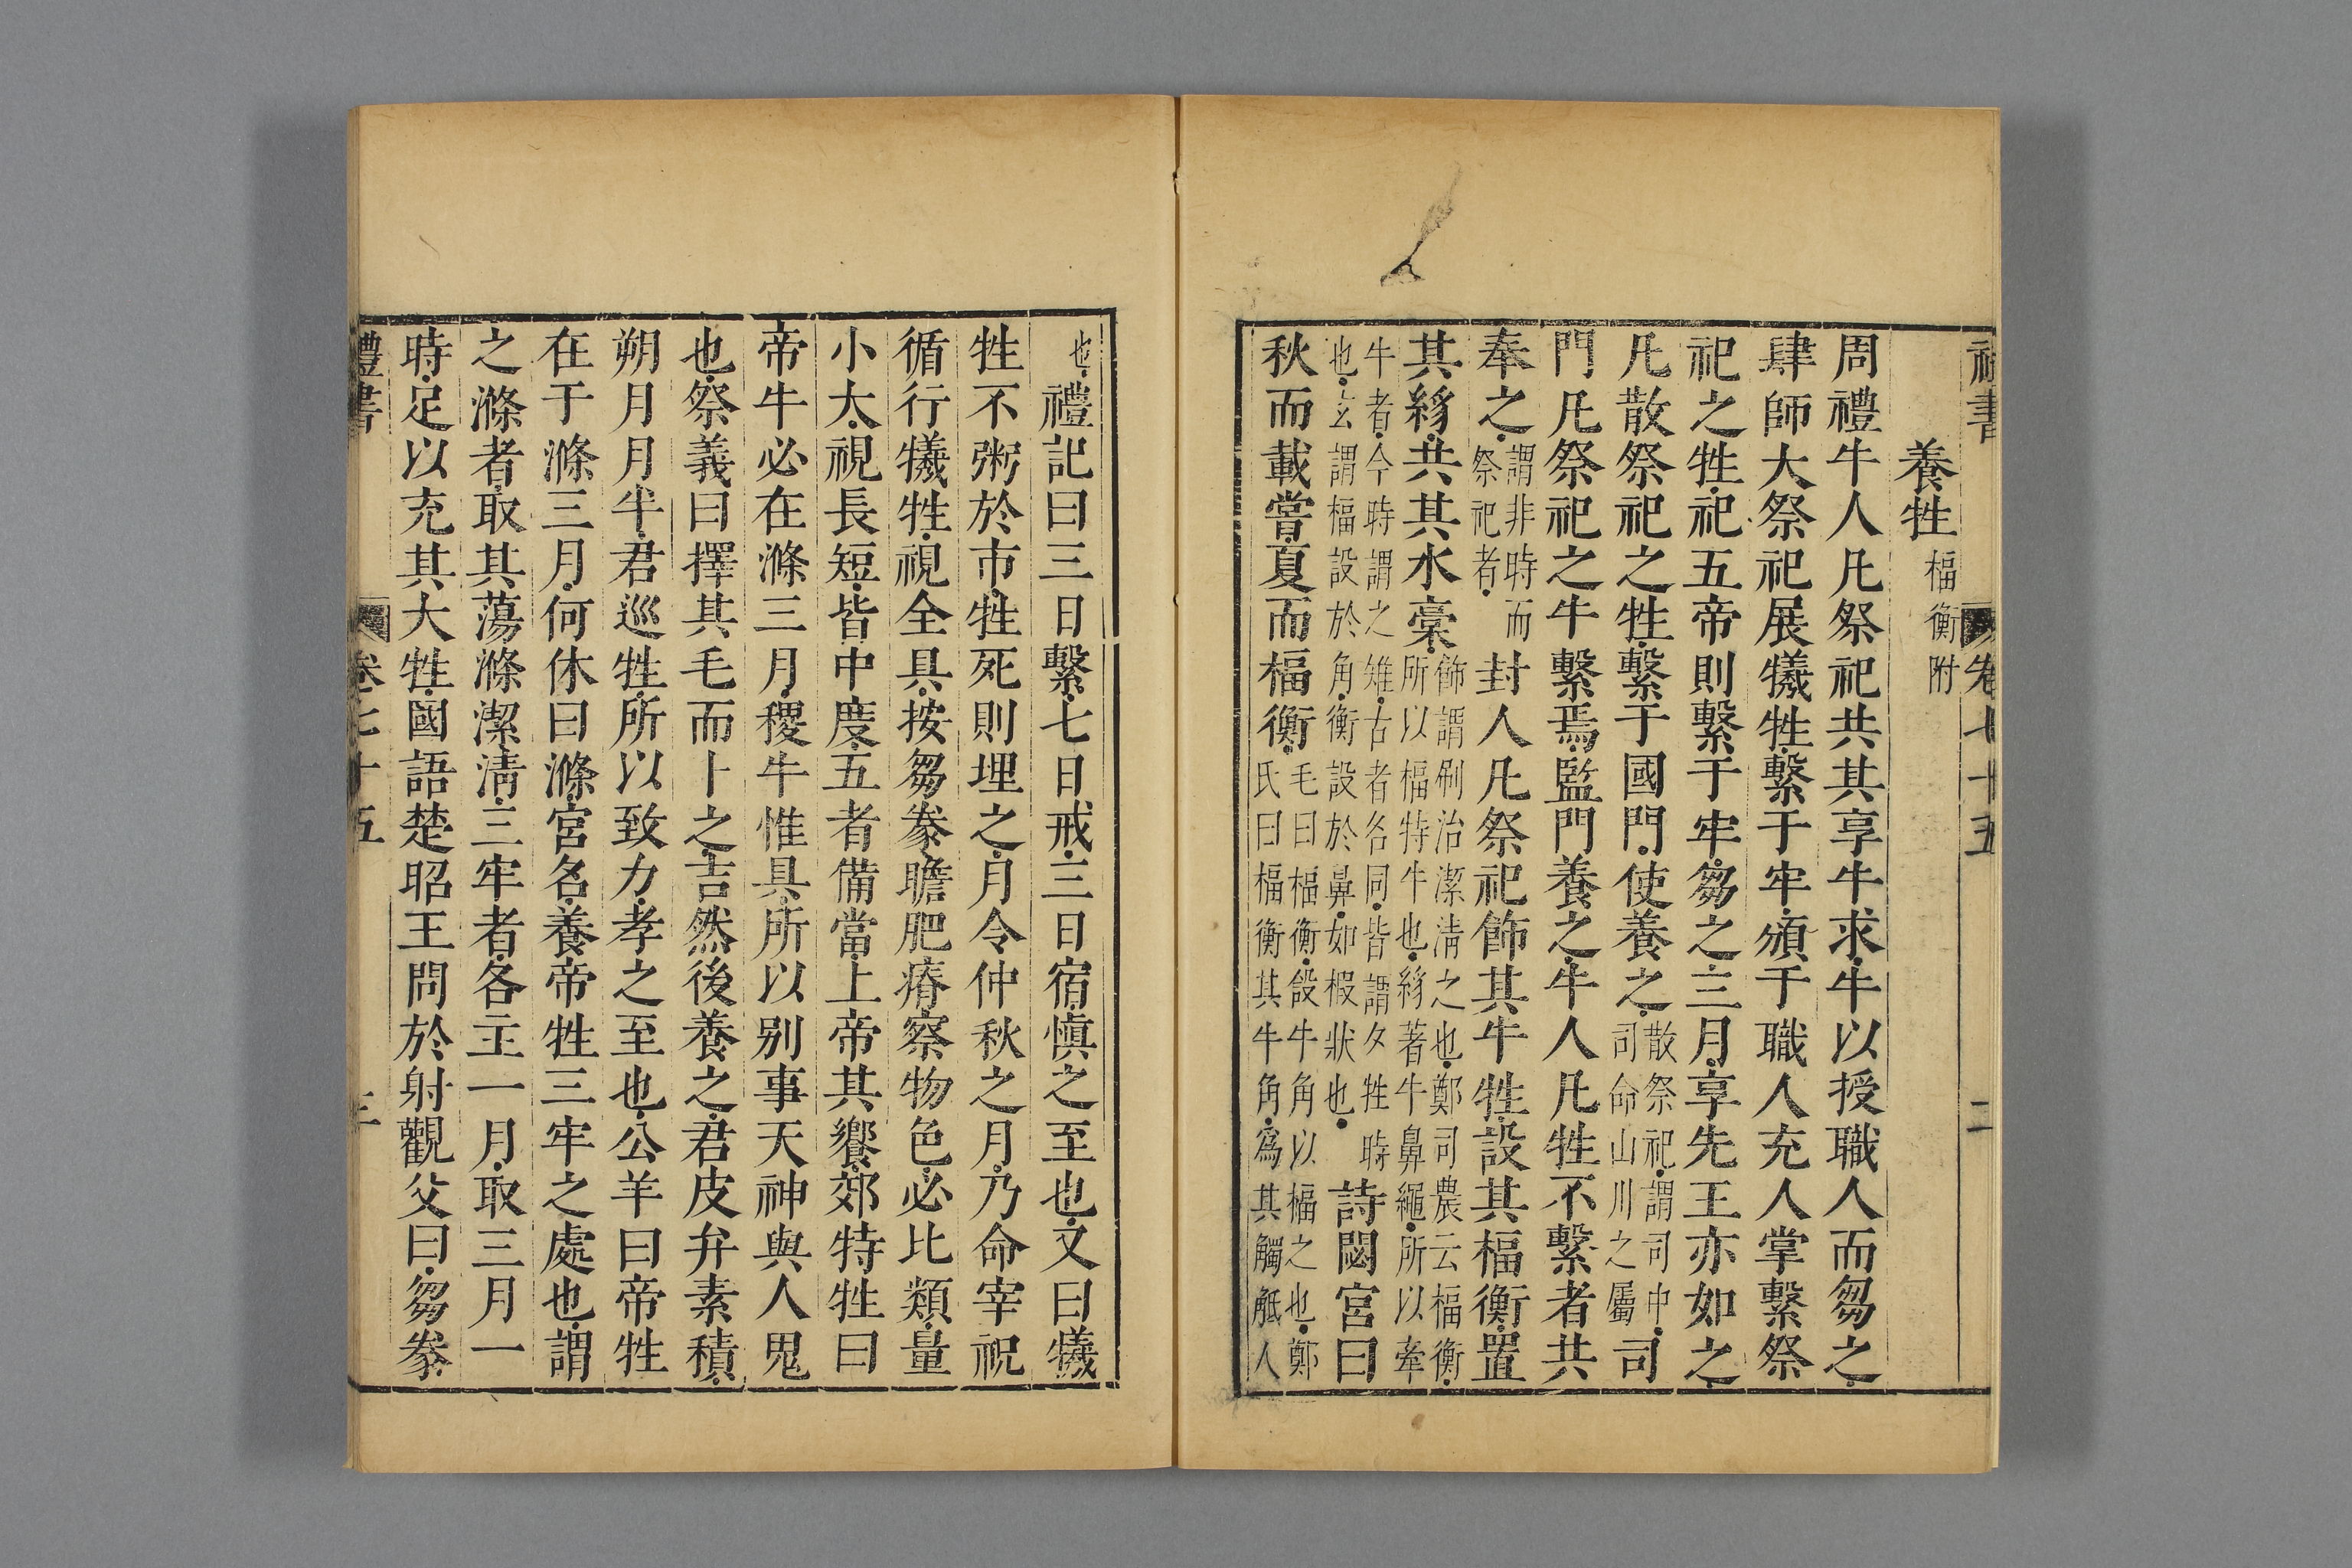 禮書 卷七十五 二
養牲 楅衡附
周禮牛人凡祭祀共其享牛求牛以授職人而芻之
肆師大祭祀展犧牲繫于牢頒于職人充人掌繫祭
祀之牲祀五帝則繫于牢芻之三月享先王亦如之
凡散祭祀之牲繫于國門使養之散祭祀謂司中司命山川之屬司
門凡祭祀之牛繫焉監門養之牛人凡牲不繫者共
奉之謂非時而祭祀者封人凡祭祀飾其牛牲設其楅衡置
其絼共其水槀飾謂刷治潔清之也鄭司農云楅衡所以楅特牛也絼著牛鼻繩所以牽
牛者今時謂之雉古者名同皆謂夕牲時也玄謂楅設於角衡設於鼻如椵狀也詩閟宮曰
秋而載嘗夏而楅衡毛曰楅衡設牛角以楅之也鄭氏曰楅衡其牛角為其觸觝人
也禮記曰三日繫七日戒三日宿慎之至也又曰犧
牲不粥於市牲死則埋之月令仲秋之月乃命宰祝
循行犧牲視全具按芻豢瞻肥瘠察物色必比類量
小大視長短皆中度五者備當上帝其饗郊特牲曰
帝牛必在滌三月稷牛惟具所以別事天神與人鬼
也祭義曰擇其毛而卜之吉然後養之君皮弁素積
朔月月半君巡牲所以致力孝之至也公羊曰帝牲
在于滌三月何休曰滌宮名養帝牲三牢之處也謂
之滌者取其蕩滌潔清三牢者各主一月取三月一
時足以充其大牲國語楚昭王問於射觀父曰芻豢
禮書 卷七十五 三